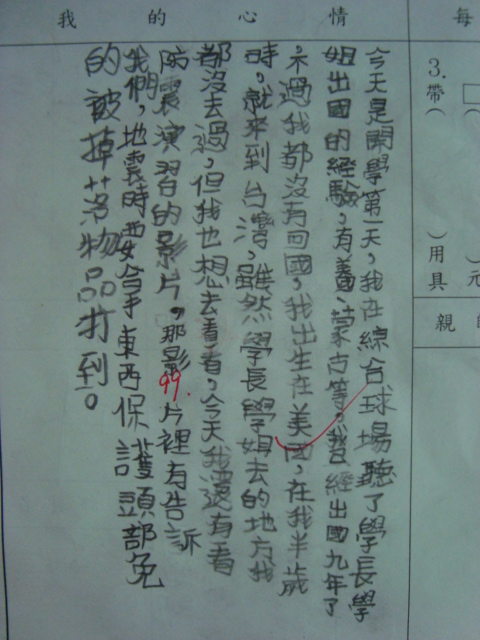 我的心情
每
3.帶（　）用具
）元
親
今天是開學第一天，我在綜合球場聽了學長學
姐出國的經驗，有美、蒙古等。我已經出國九年了
，不過我都沒有回國，我出生在美國，在我半歲
時，就來到台灣，雖然學長學姐去的地方我
都沒去過，但我也想去看看，今天我還有看
防震演習的影片，那影片裡有告訴
我們，地震時要拿東西保護頭部免
的被掉落物品打到。
99.